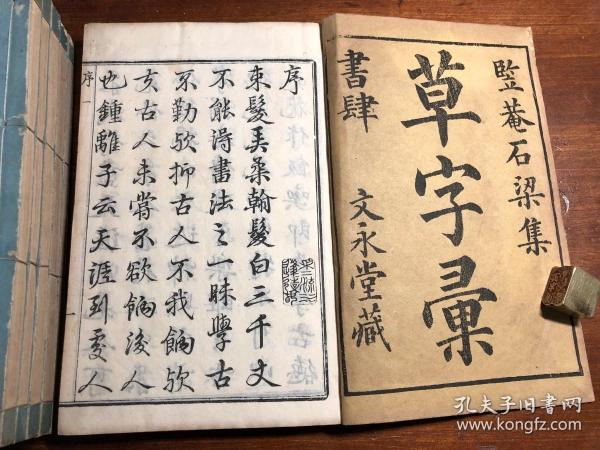 竪菴石梁集
草字彙
書肆 文永堂藏
序
束髮弄柔翰髮白三千丈
不能得書法之一昧學古
不勤歟抑古人不我餉歟
夫古人未嘗不欲餉後人
也鍾離子云天涯到處人
序一
一
孔夫子旧书网
www.kongfz.com